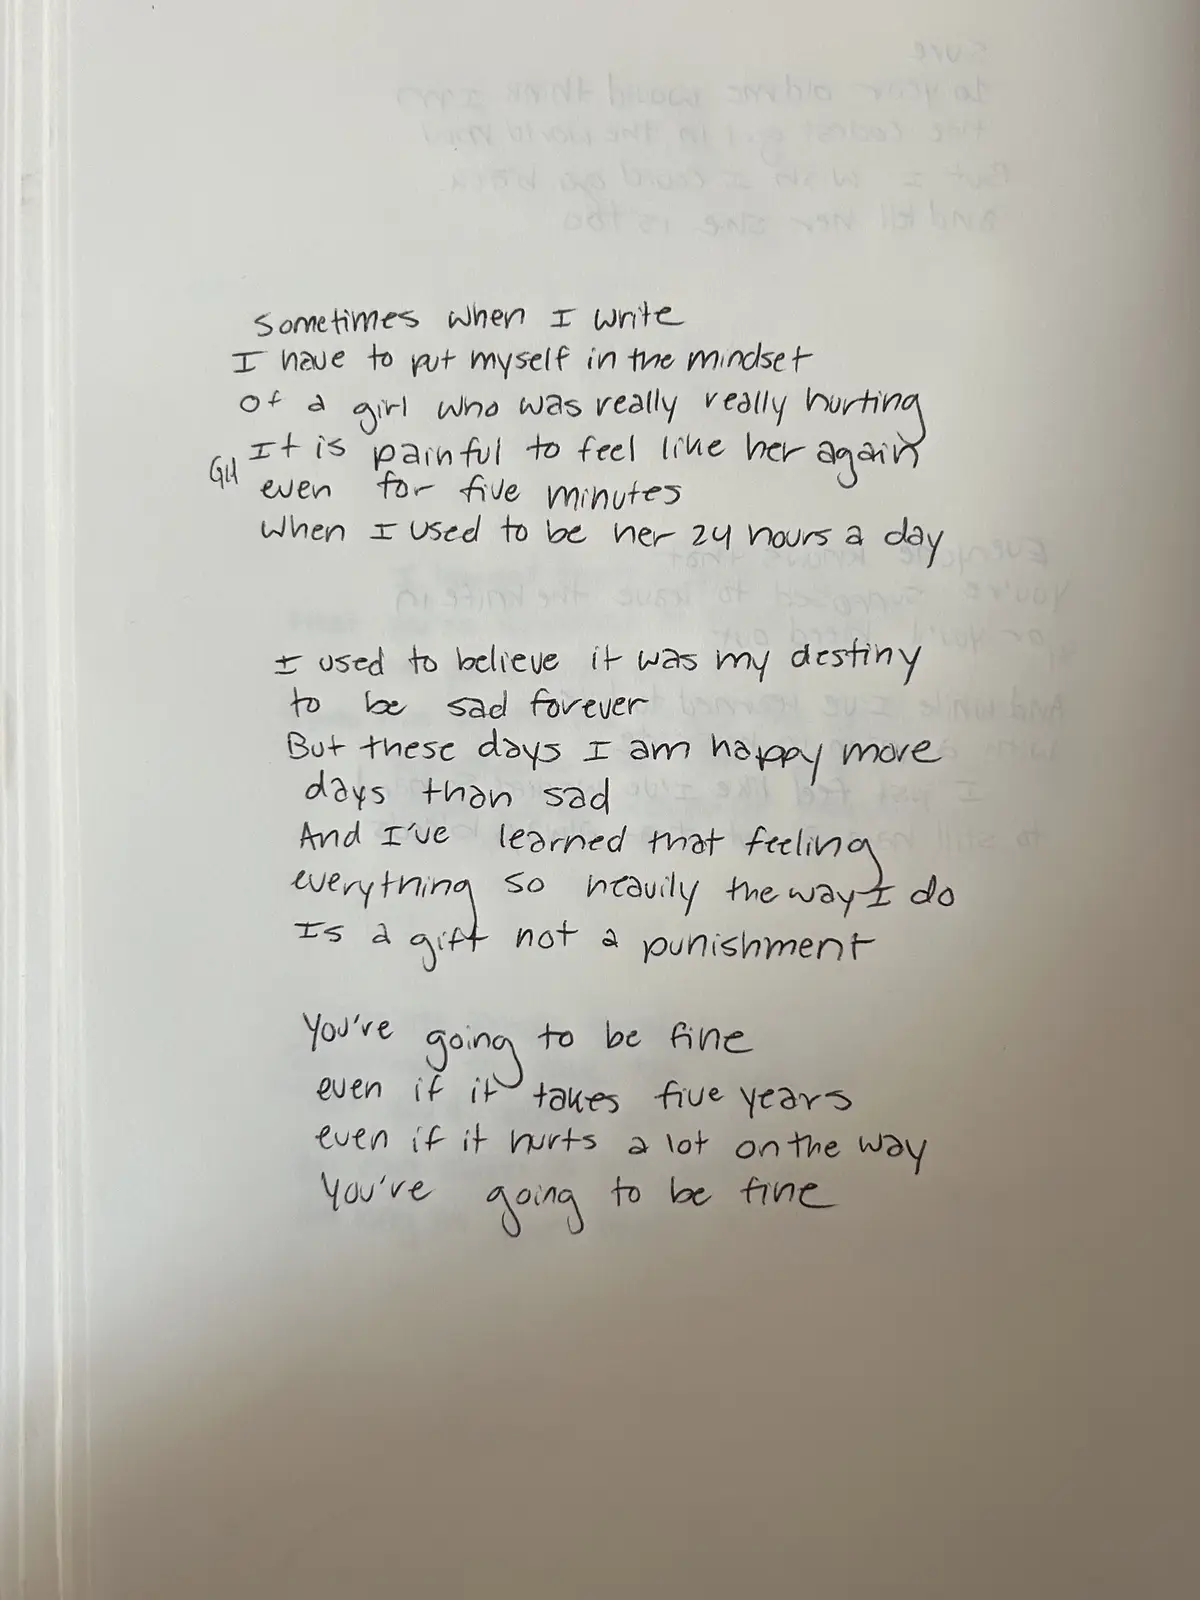 Sometimes when I write
I have to put myself in the mindset
of a girl who was really really hurting
It is painful to feel like her again
GH even for five minutes
When I used to be her 24 hours a day
I used to believe it was my destiny
to be sad forever
But these days I am happy more
days than sad
And I've learned that feeling
everything so heavily the way I do
Is a gift not a punishment
You're going to be fine
even if it takes five years
even if it hurts a lot on the way
You're going to be fine